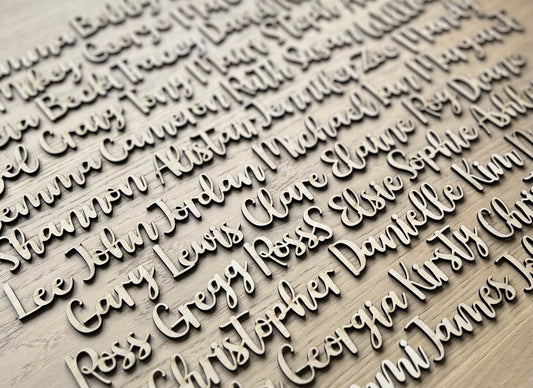 Bobby
Mikey George
Becki Tracey David
Craig Tony Stuart
Gemma Cameron Ruth Susan
Shannon Alistair Jennifer Zoe Mandy
Lee John Jordan Michael Ian Margaret
Gary Lewis Claire Elaine Roy Diane
Ross Gregg RossS Elsie Sophie
Christopher Danielle Kim
Georgia Kirsty
James